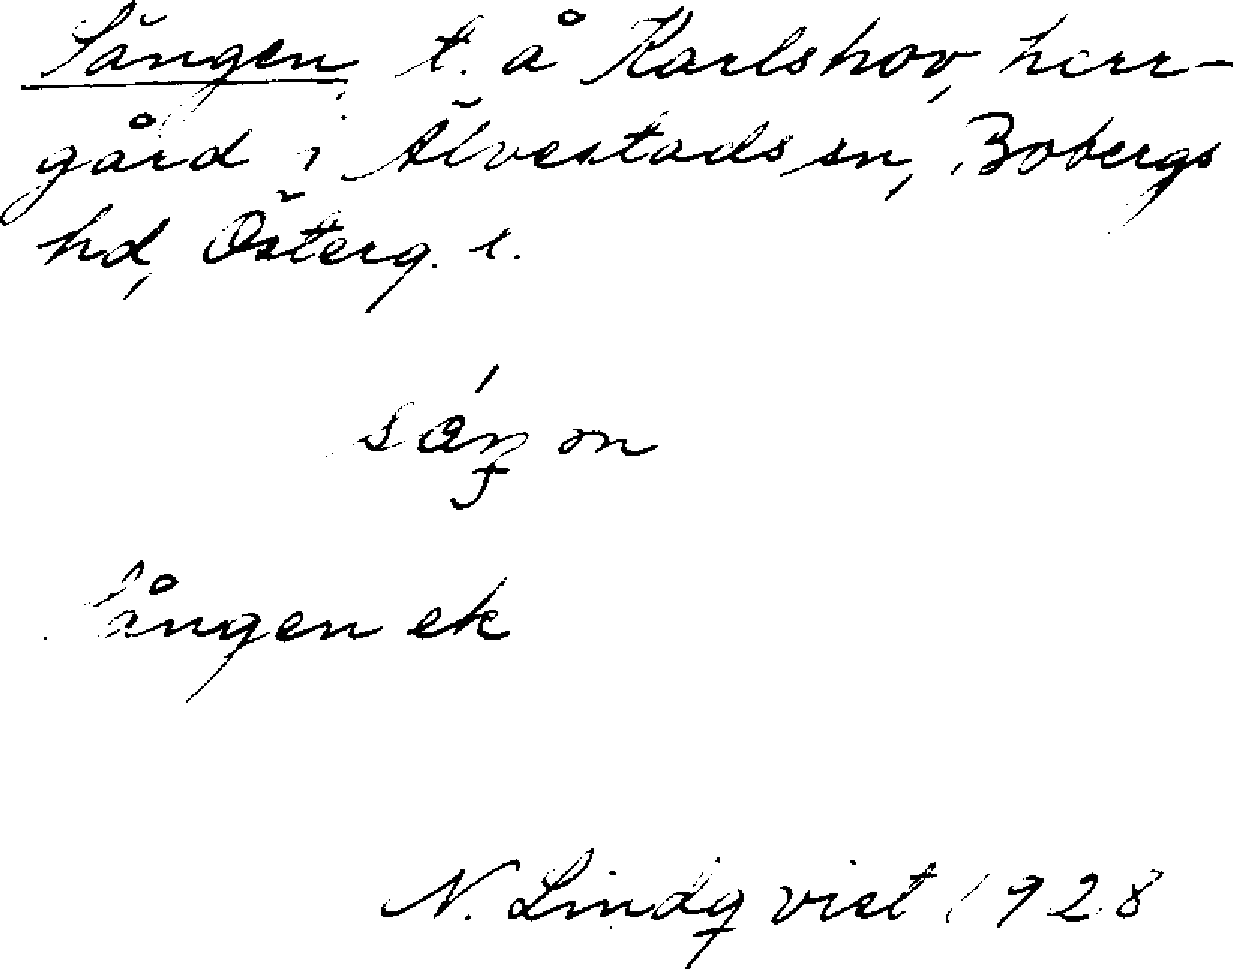 Sängen, t. å Karlshov, herr-
gård i Älvestads sn, Bobergs
hd, Österg. l.
Sången ek
N. Lindqvist 1928